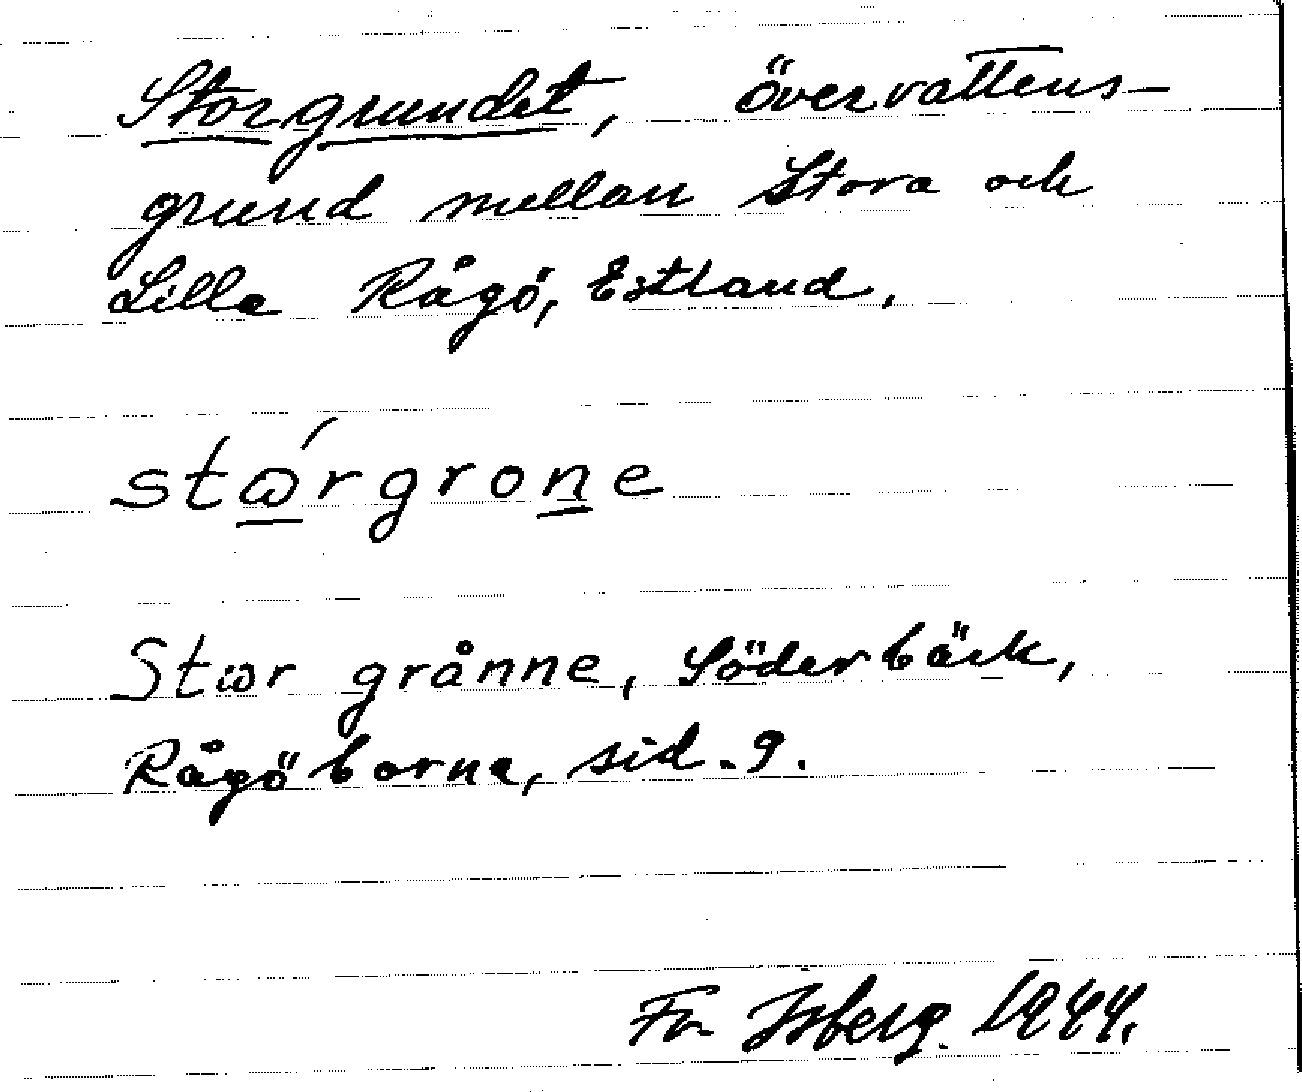 Storgrundet, övervattens-
grund mellan Stora och
Lilla Rågö, Estland.
stɷ́rgrone
Stɷr grånne, Söderbäck,
Rågöborna, sid. 9.
Fr Isberg. 1944.